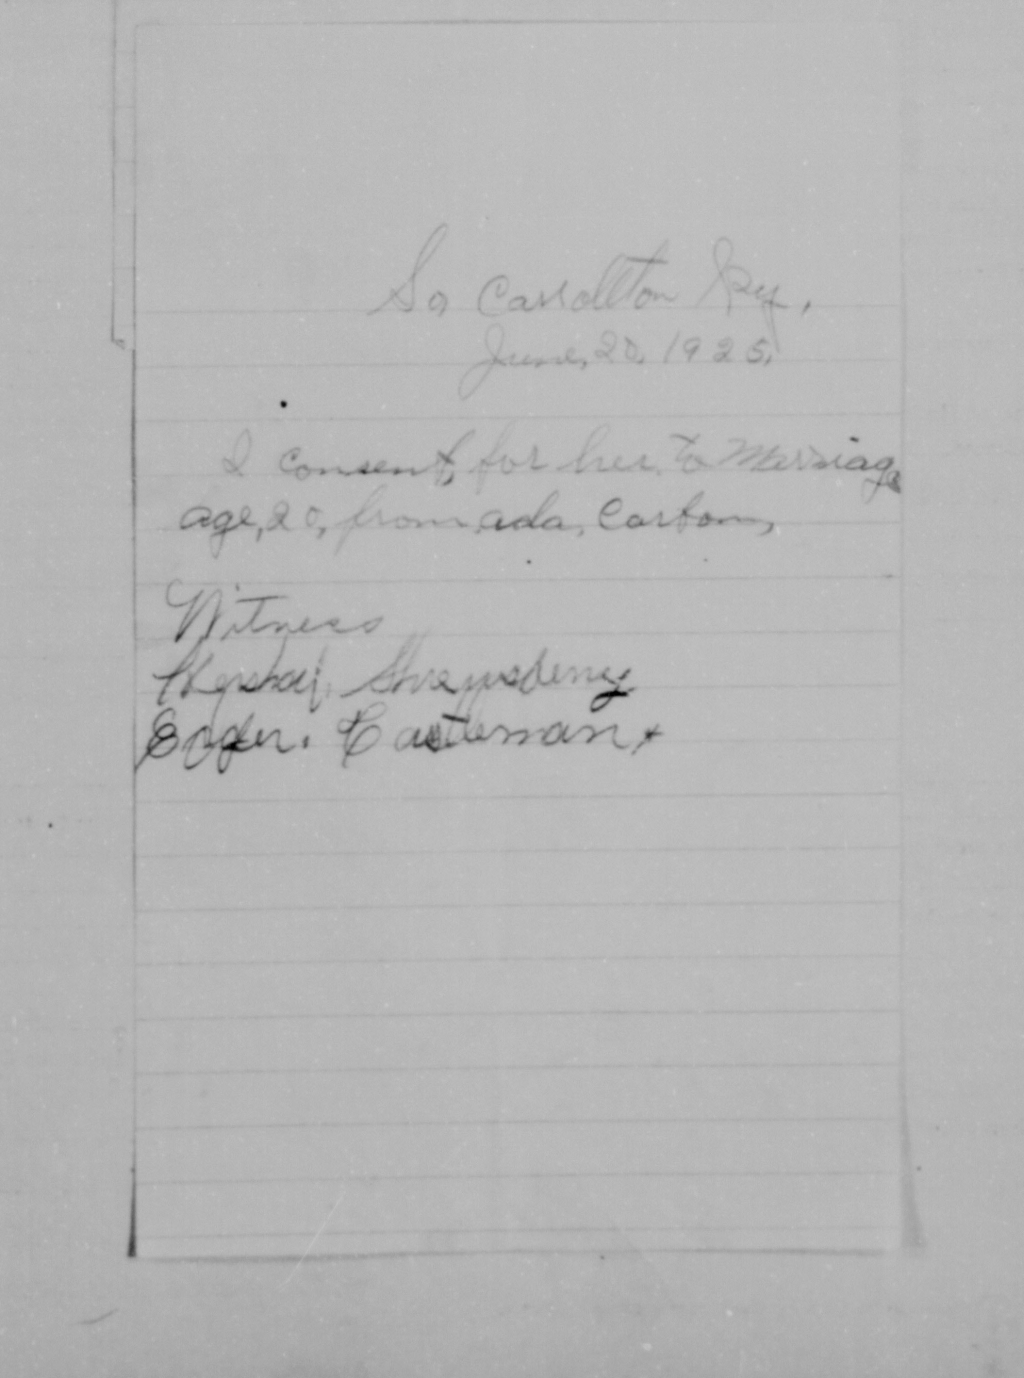 So Carrollton Ky.
June, 20, 1925,
I consent, for her to Marriag
age, 20, from ada, Carton,
Witness
Shrewsberry
Casteman